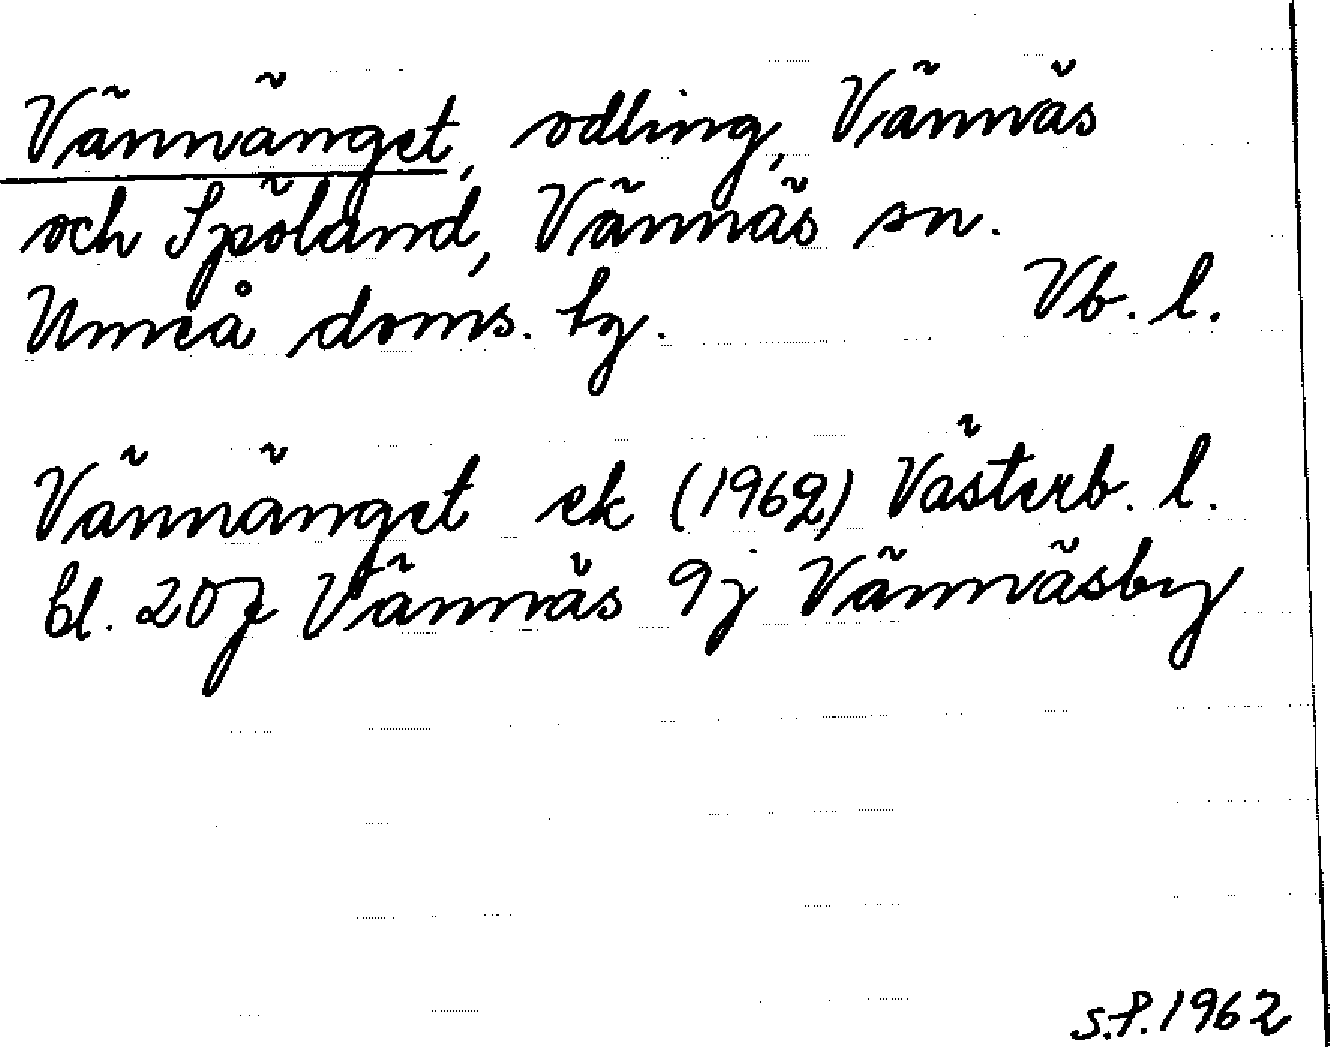 Vännänget, odling, Vännäs
och Spöland, Vännäs sn.
Umeå doms. hg. Vb. l.
Vännänget ek (1962) Västerb. l.
bl. 20J Vännäs 9j Vännäsby
s.f. 1962